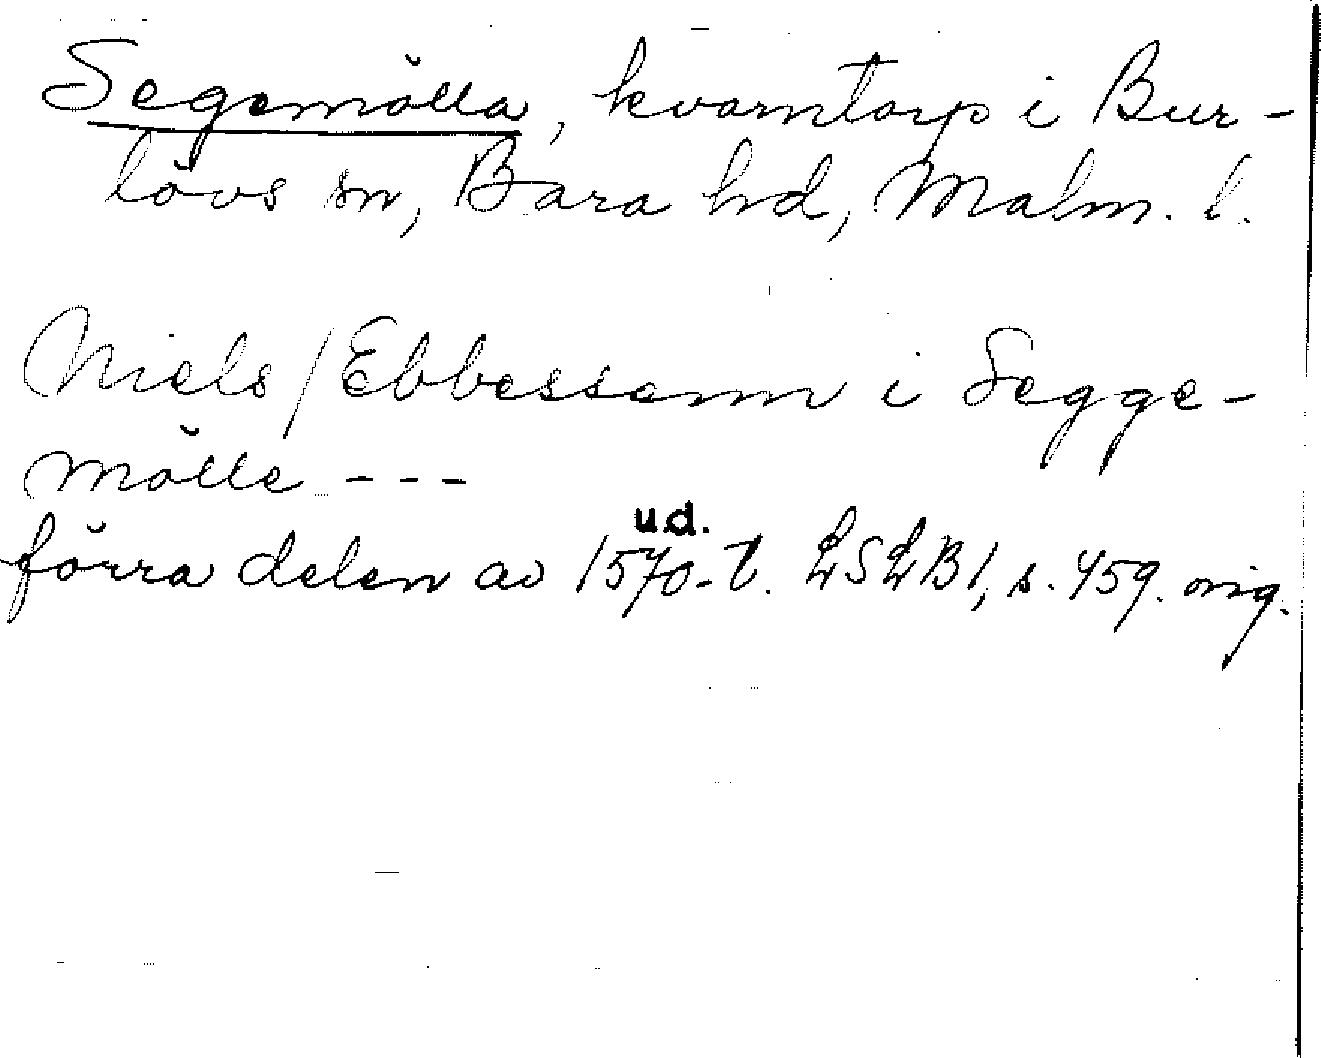 Segemölla, kvarntorp i Bur-
lövs sn, Bara hd, Malm. l.
Niels / Ebbessønn i Segge-
mölle ---
ud.
förra delen av 1570-t. LSLB1, s. 459. orig.